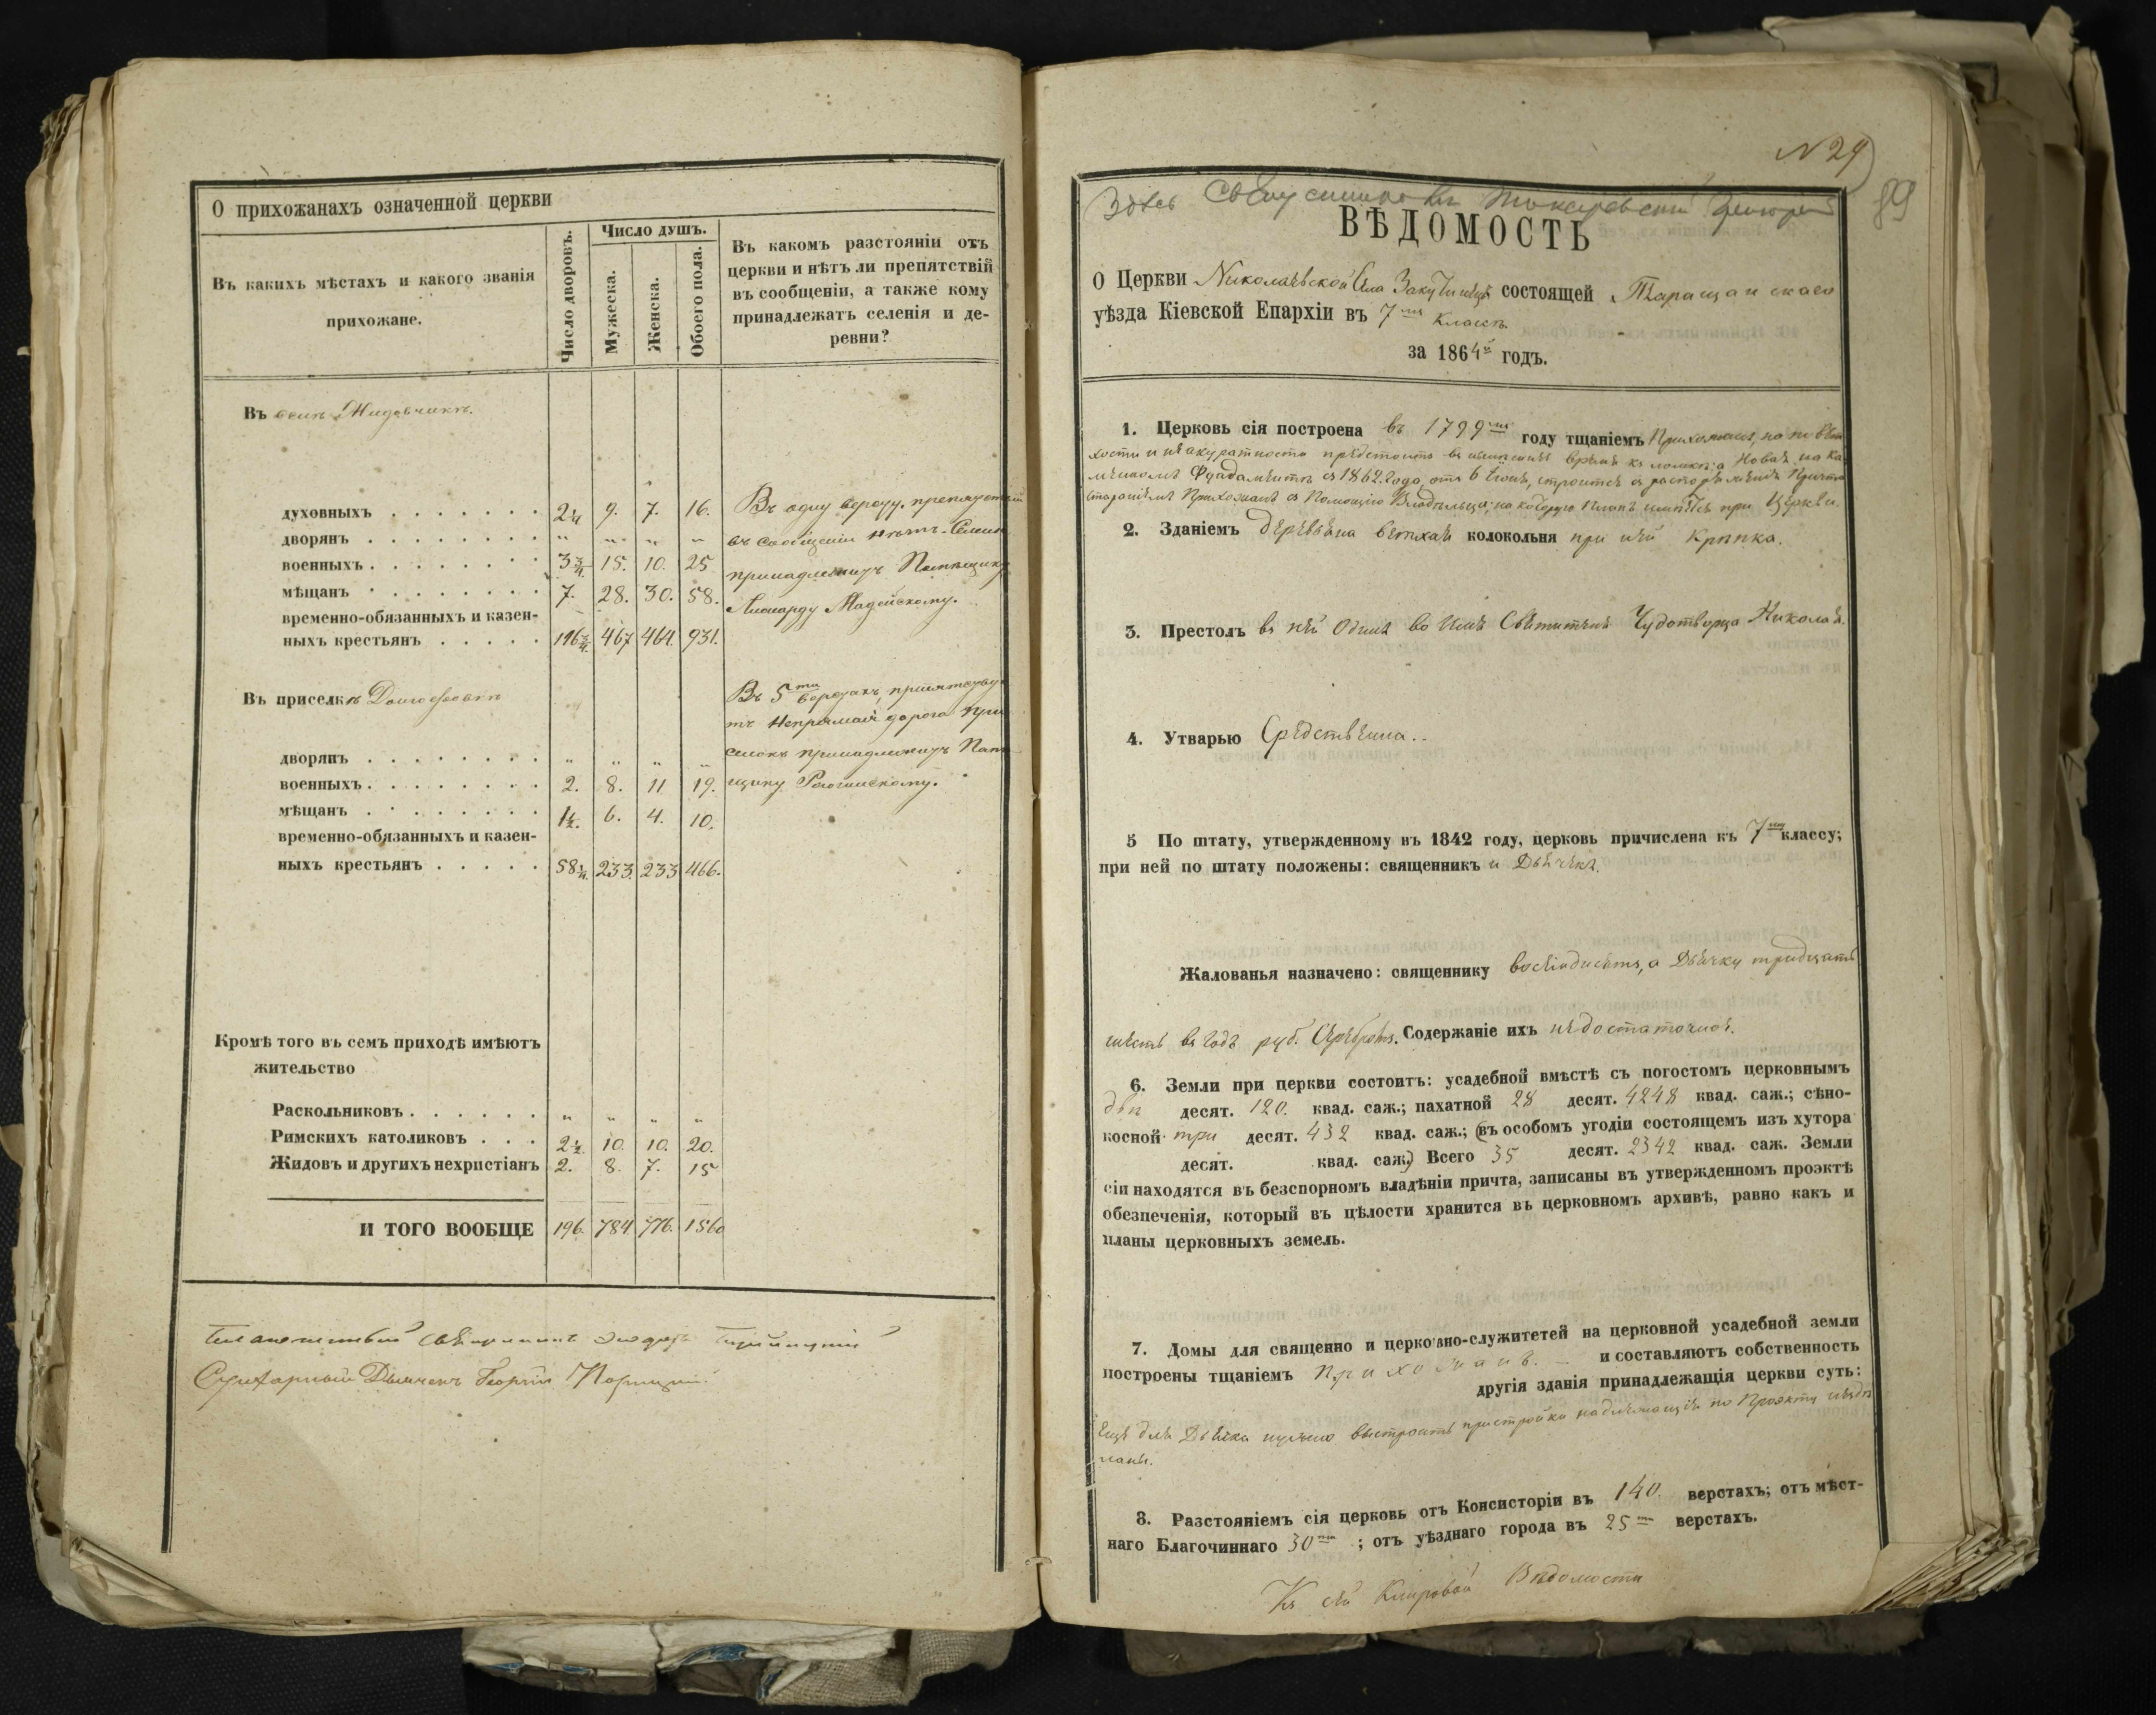 О прихожанахъ означенной церкви
Въ какихъ мѣстахъ и какого званія
прихожане.
Число дворовъ.
Число душъ.
Мужеска.
Женска.
Обоего пола.
Въ какомъ разстояніи отъ
церкви и нѣтъ ли препятствій
въ сообщеніи, а также кому
принадлежатъ селенія и де-
ревни?
Въ селѣ Жидовчикѣ.
духовныхъ 2¼ 9. 7. 16. Въ одну версту, препятствій
дворянъ " " " " въ сообщеніи нѣтъ. Селеніе
военныхъ 3¾ 15. 10. 25 принадлежитъ Помѣщику
мѣщанъ 7. 28. 30. 58. Мадейскому.
временно-обязанныхъ и казен-
ныхъ крестьянъ 116¾ 467 464. 931.
Въ приселкѣ
Въ 5ти верстахъ, препятствуе
тъ непрямая дорога при
дворянъ " " " " селокъ принадлежитъ Помѣ
военныхъ 2. 8. 11 19. щику
мѣщанъ 1½. 6. 4. 10.
временно-обязанныхъ и казен-
ныхъ крестьянъ 58¼. 233. 233 466.
Кромѣ того въ семъ приходѣ имѣютъ
жительство
Раскольниковъ " " " "
Римскихъ католиковъ 2½. 10. 10. 20.
Жидовъ и другихъ нехристіанъ 2. 8. 7. 15
И ТОГО ВООБЩЕ 196. 784. 776. 1560
Дьячекъ Георгій
N 29
89
Здѣсь
ВѢДОМОСТЬ
О Церкви Николаевской Села состоящей Таращанскаго
уѣзда Кіевской Епархіи въ 7мъ классѣ
за 1864й годъ.
1. Церковь сія построена въ 1799мъ году тщаніемъ Прихожанъ, но по вет
хости и неакуратности предстоитъ въ время къ ломкѣ; а Новая на Ка
менномъ Фундаментѣ съ 1862 года отъ 6 Іюня, строится съ распоряженія Причта
стараніемъ Прихожанъ съ Помощію Владѣльца; на которую Планъ имѣется при Церкви.
2. Зданіемъ деревяна ветхая колокольня при ней крѣпка.
3. Престолъ въ ней Одинъ во Имя Святителя Чудотворца Николая.
4. Утварью Средственна.
5 По штату, утвержденному въ 1842 году, церковь причислена къ 7му классу;
при ней по штату положены: священникъ и Дьячекъ.
Жалованья назначено: священнику восемдисятъ, а Дьячку тридцать
шесть въ годъ руб. Серебромъ. Содержаніе ихъ недостаточное.
6. Земли при церкви состоитъ: усадебной вмѣстѣ съ погостомъ церковнымъ
двѣ десят. 120. квад. саж.; пахатной 28 десят. 4248 квад. саж.; сѣно-
косной три десят. 432 квад. саж.; (въ особомъ угодіи состоящемъ изъ хутора
десят. квад. саж.) Всего 35 десят. 2342 квад. саж. Земли
сіи находятся въ безспорномъ владѣніи причта, записаны въ утвержденномъ проэктѣ
обезпеченія, который въ цѣлости хранится въ церковномъ архивѣ, равно какъ и
планы церковныхъ земель.
7. Домы для священно и церковно-служитетей на церковной усадебной земли
построены тщаніемъ Прихожанъ. и составляютъ собственность
другія зданія принадлежащія церкви суть:
Еще для Дьячка нужно выстроить пристройки надлежащія по Проэкту
8. Разстояніемъ сія церковь отъ Консисторіи въ 140. верстахъ; отъ мѣст-
наго Благочиннаго 30ти ; отъ уѣзднаго города въ 25ти верстахъ.
Къ сей Клировой Вѣдомости